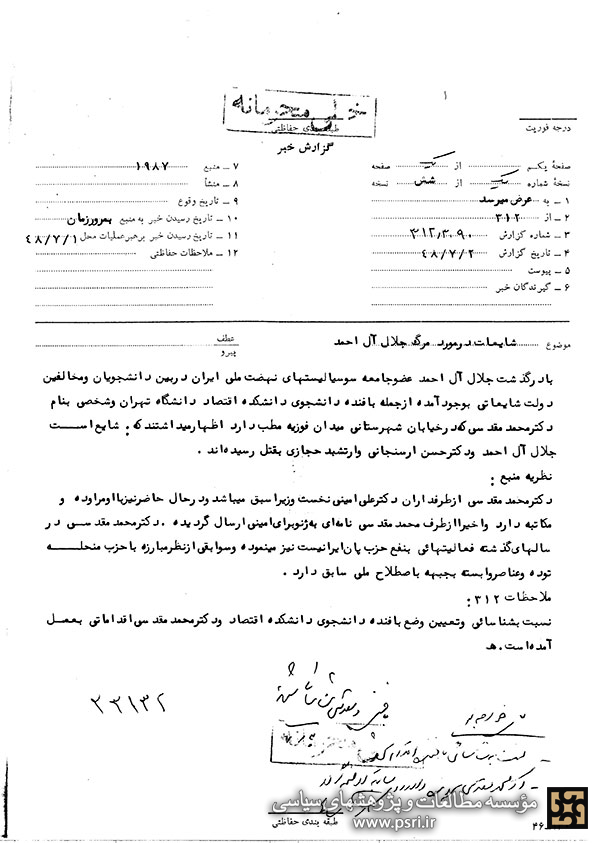 خیلی محرمانه
طبقه بندی حفاظتی
گزارش خبر
درجه فوریت
صفحهٔ یکم از یک صفحه
نسخهٔ شماره یک از شش نسخه
۱ ــ به عرض میرسد
۲ ــ از ۳۱۲
۳ ــ شماره گزارش ۳۱۲/۳۰۹۰
۴ ــ تاریخ گزارش ۴۸/۷/۲
۵ ــ پیوست
۶ ــ گیرندگان خبر
۷ ــ منبع ۱۹۸۷
۸ ــ منشأ
۹ ــ تاریخ وقوع
۱۰ ــ تاریخ رسیدن خبر به منبع بمرور زمان
۱۱ ــ تاریخ رسیدن خبر برهبرعملیات محل ۴۸/۷/۱
۱۲ ــ ملاحظات حفاظتی
موضوع شایعات در مورد مرگ جلال آل احمد
عطف
پیرو
با درگذشت جلال آل احمد عضو جامعه سوسیالیستهای نهضت ملی ایران در بین دانشجویان و مخالفین
دولت شایعاتی بوجود آمده از جمله بافنده دانشجوی دانشکده اقتصاد دانشگاه تهران و شخصی بنام
دکتر محمد مقدسی که در خیابان شهرستانی میدان فوزیه مطب دارد اظهار میداشتند که: شایع است
جلال آل احمد ودکتر حسن ارسنجانی وارتشبد حجازی بقتل رسیده‌اند.
نظریه منبع:
دکتر محمد مقدسی از طرفداران دکتر علی امینی نخست وزیر اسبق میباشد ودر حال حاضر نیز با او مراوده و
مکاتبه دارد واخیرا از طرف محمد مقدسی نامه‌ای به ژنو برای امینی ارسال گردیده. دکتر محمد مقدسی در
سالهای گذشته فعالیتهائی بنفع حزب پان ایرانیست نیز مینموده وسوابقی از نظر مبارزه با حزب منحله
توده وعناصر وابسته بجبهه باصطلاح ملی سابق دارد.
ملاحظات ۳۱۲:
نسبت بشناسائی وتعیین وضع بافنده دانشجوی دانشکده اقتصاد ودکتر محمد مقدسی اقداماتی بعمل
آمده است. ه‍
۲۳۱۳۲
مؤسسه مطالعات و پژوهشهای سیاسی
www.psri.ir
طبقه بندی حفاظتی
۴۶